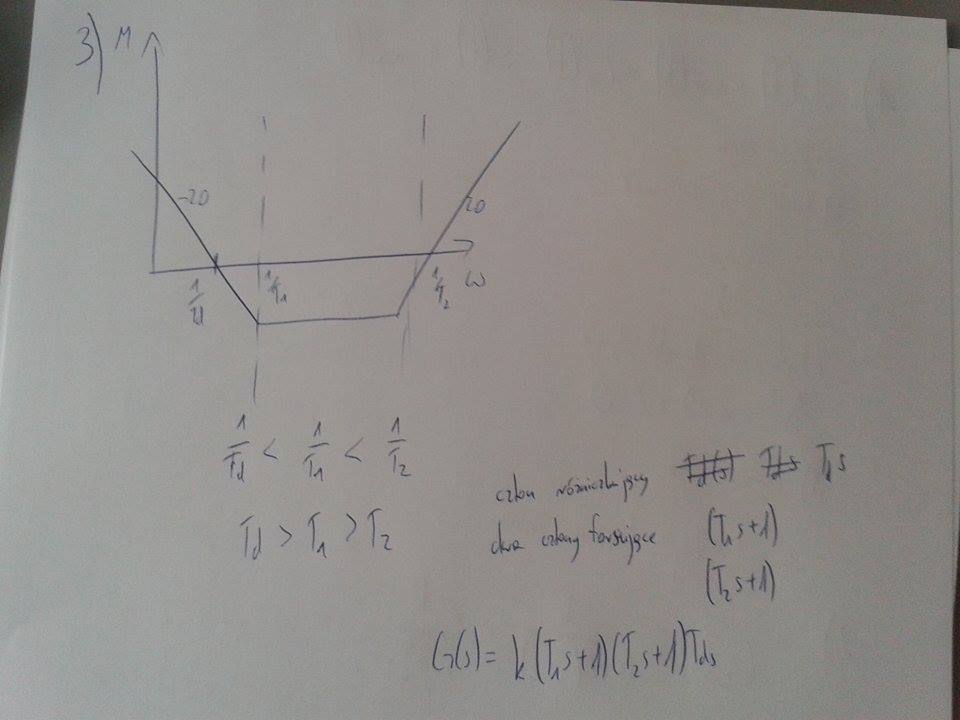 3) M
-20
20
1/Td
1/T1
1/T2
ω
1/Td < 1/T1 < 1/T2
Td > T1 > T2
człon różniczkujący Td(s) Tds Tds
dwa człony forsujące (T1s+1)
(T2s+1)
G(s) = k(T1s+1)(T2s+1)Tds